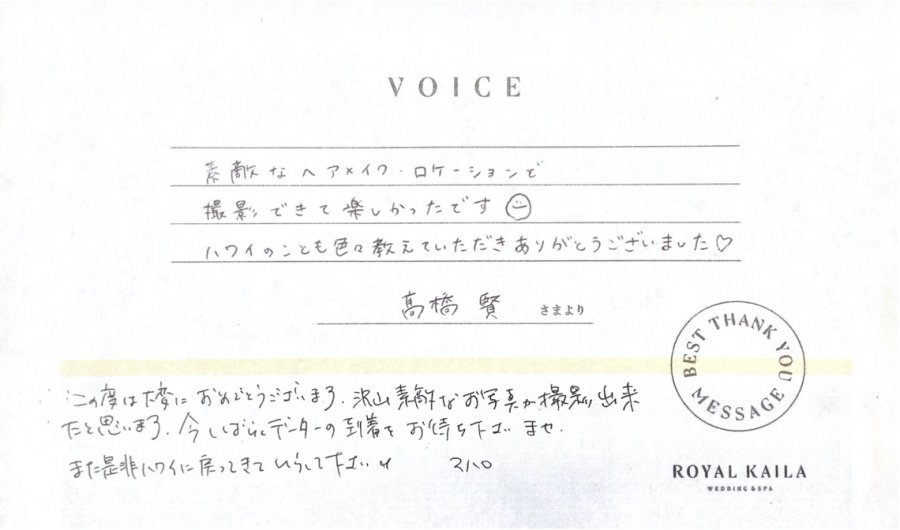 VOICE
素敵なヘアメイク・ロケーションで
撮影できて楽しかったです
ハワイのことも色々教えていただきありがとうございました♡
高橋 賢 さまより
BEST THANK YOU MESSAGE
この度は大変におめでとうございます。沢山素敵なお写真が撮影出来
たと思います。今しばらくデーターの到着をお待ち下さいませ。
また是非ハワイに戻ってきていらして下さい
ROYAL KAILA
WEDDING & SPA